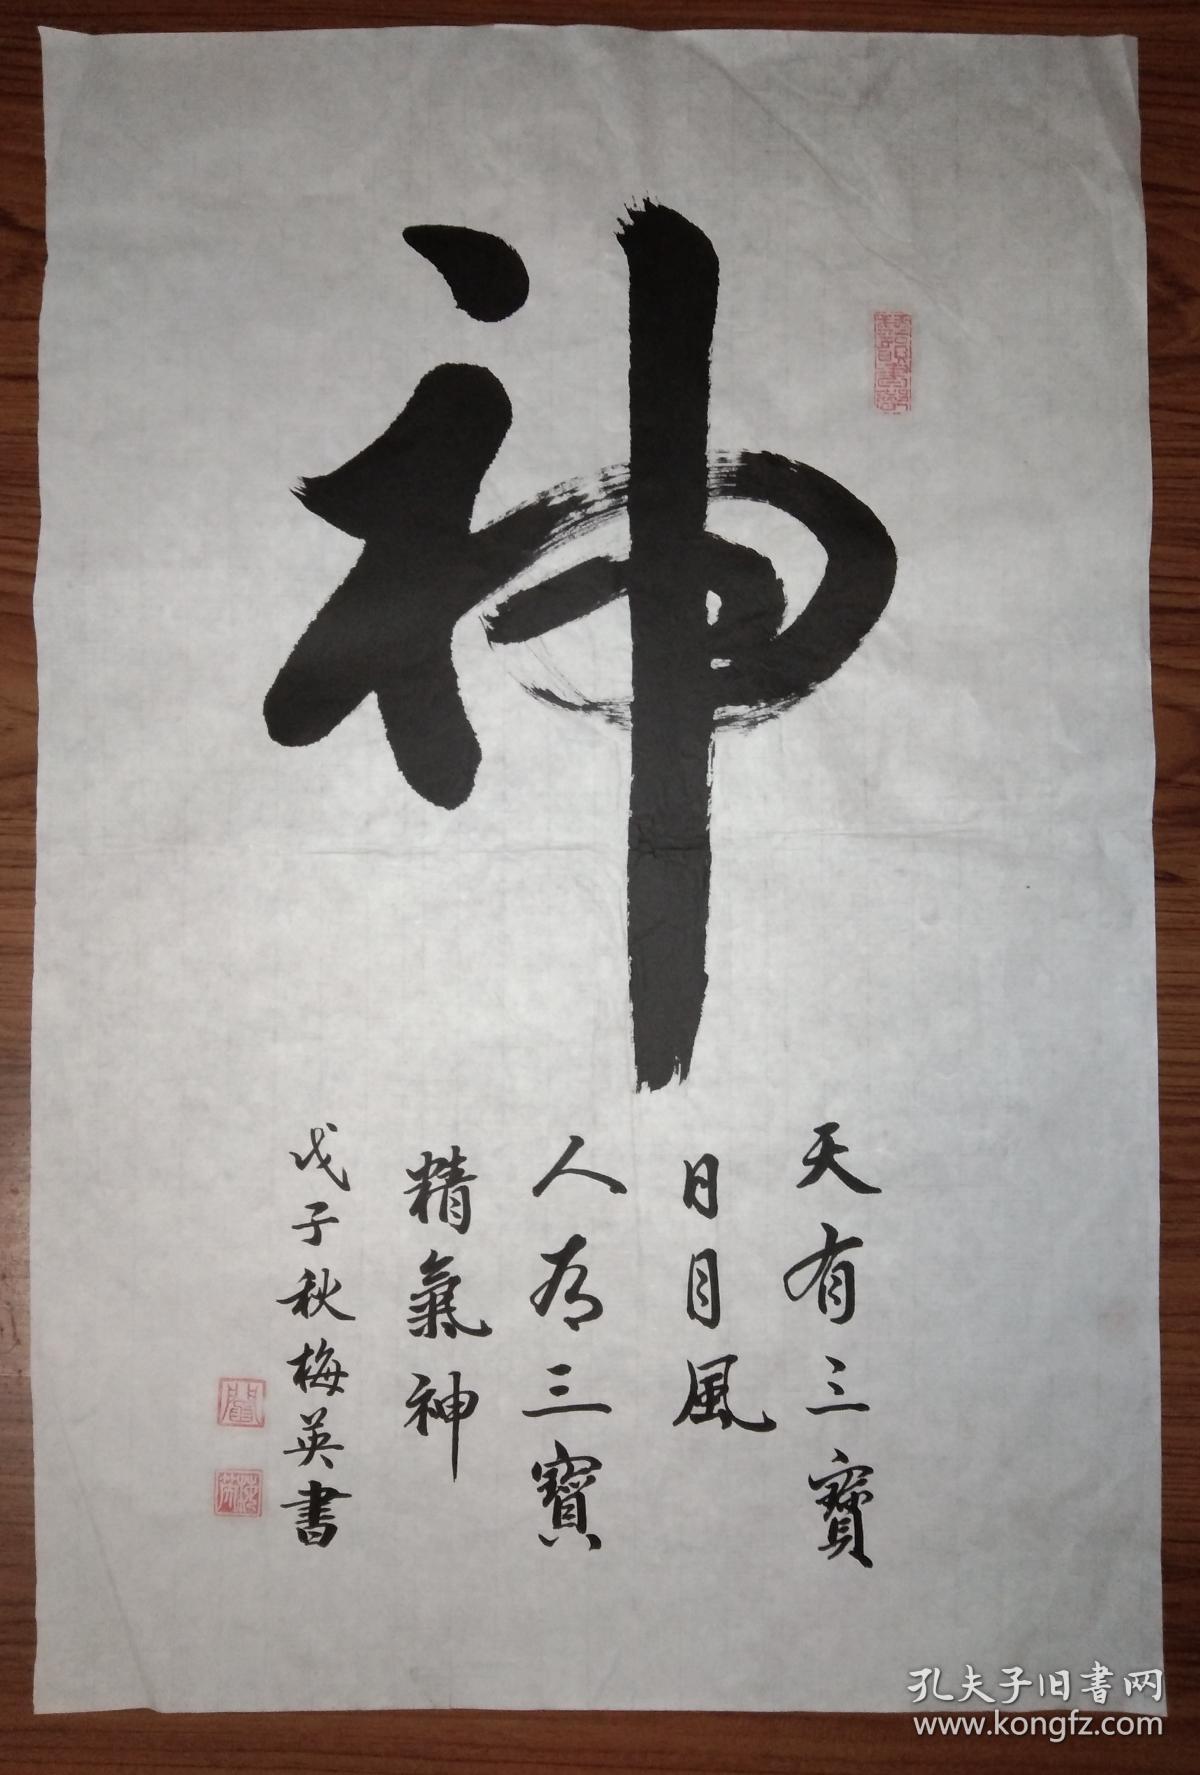 神
天有三寶
日月風
人有三寶
精氣神
戊子秋梅英書
孔夫子旧书网
www.kongfz.com